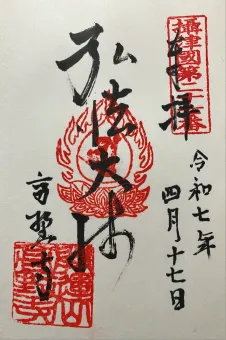 奉拝
攝津國第二十番
令和七年
四月十七日
弘法大師
高野寺